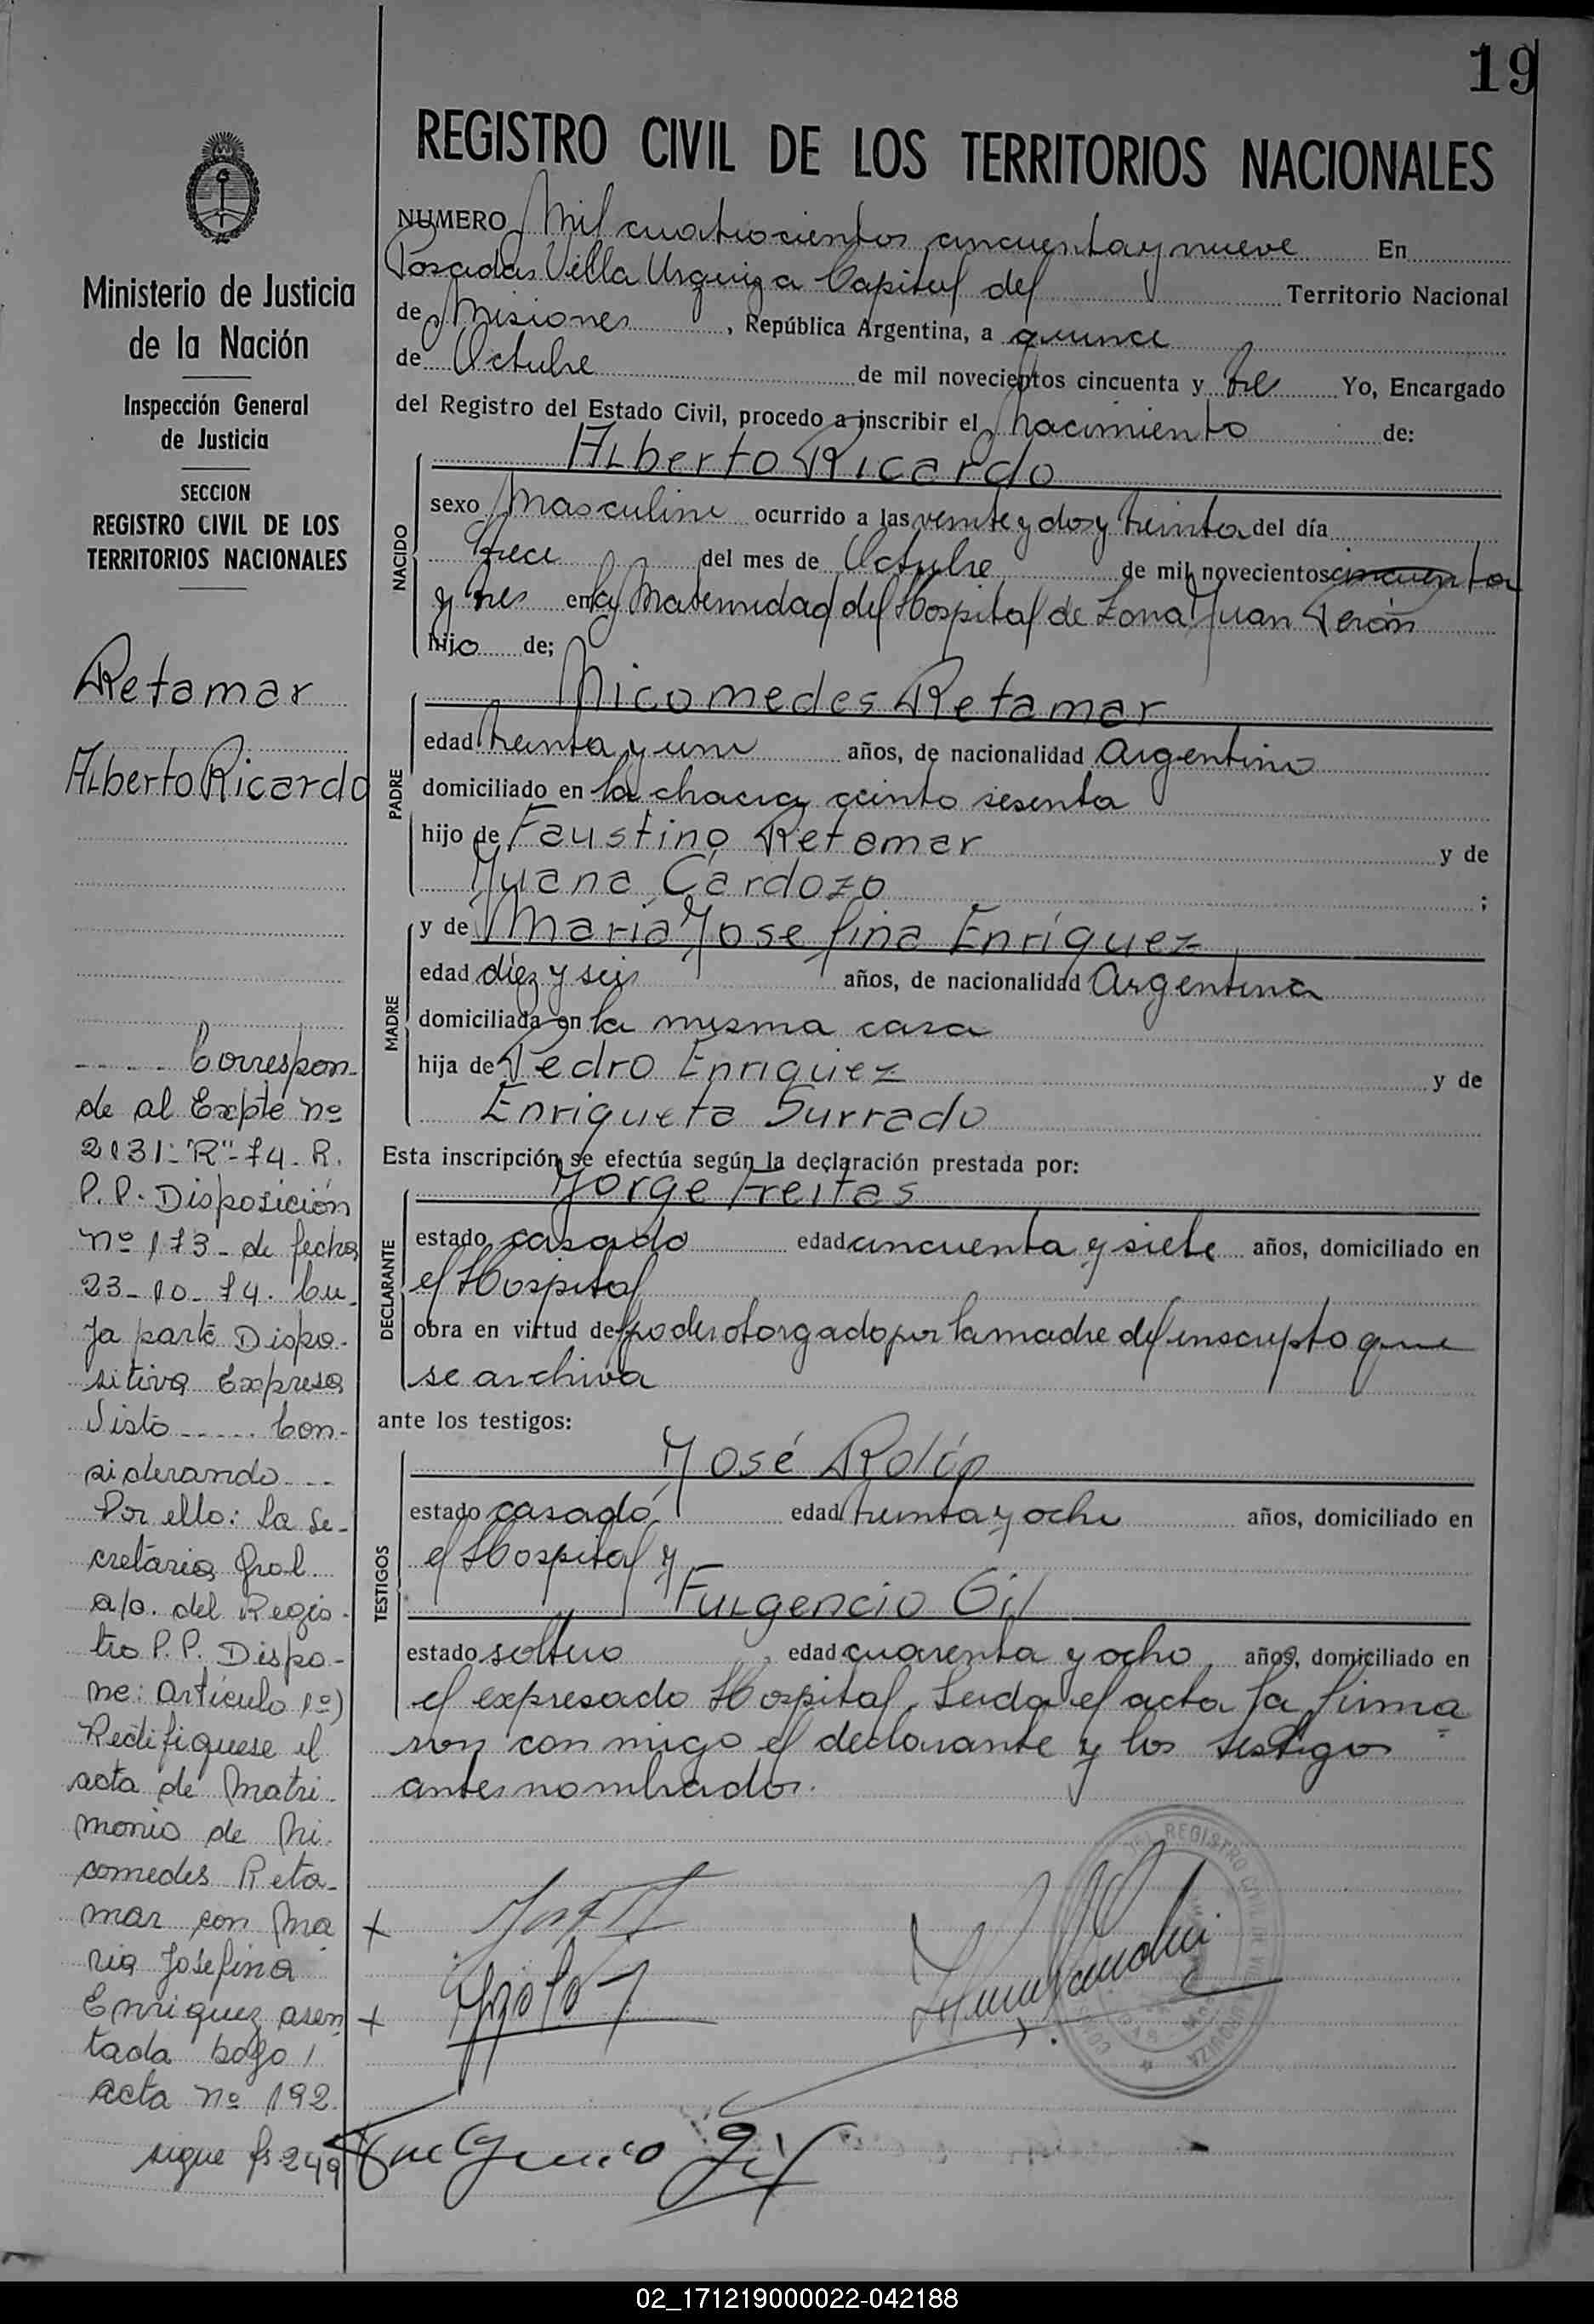 19
REGISTRO CIVIL DE LOS TERRITORIOS NACIONALES
Ministerio de Justicia
de la Nación
Inspección General
de Justicia
SECCION
REGISTRO CIVIL DE LOS
TERRITORIOS NACIONALES
Retamar
Alberto Ricardo
Correspon-
de al Expte nº
2131-"R"-74-R.
P.P. Disposición
nº 173- de fecha
23-10-74. Cu-
ya parte Dispo-
sitiva Expresa
Visto ----- Con-
siderando ---
Por ello: La Se-
cretaria Gral.
a/c. del Regis-
tro P.P. Dispo-
ne: Artículo 1º)
Rectifiquese el
acta de Matri-
monio de Ni-
comedes Reta-
mar con Ma
ria Josefina
Enriquez asen
tada bajo
acta nº 192.
sigue fs. 249
NUMERO Mil cuatrocientos cincuenta y nueve En
Posadas Villa Urquiza Capital del Territorio Nacional
de Misiones, República Argentina, a quince
de Octubre de mil novecientos cincuenta y tres Yo, Encargado
del Registro del Estado Civil, procedo a inscribir el nacimiento de:
NACIDO
Alberto Ricardo
sexo Masculino ocurrido a las veinte y dos y treinta del día
trece del mes de Octubre de mil novecientos cincuenta
y tres en la Maternidad del Hospital de Zona Juan Perón
hijo de;
PADRE
Nicomedes Retamar
edad treinta y uno años, de nacionalidad Argentino
domiciliado en la chacra ciento sesenta
hijo de Faustino Retamar y de
Juana Cardozo ;
MADRE
y de María Josefina Enríquez
edad diez y seis años, de nacionalidad Argentina
domiciliada en la misma casa
hija de Pedro Enriquez y de
Enriqueta Surrado
Esta inscripción se efectúa según la declaración prestada por:
DECLARANTE
Jorge Freitas
estado casado edad cincuenta y siete años, domiciliado en
el Hospital
obra en virtud del poder otorgado por la madre del inscripto que
se archiva
ante los testigos:
TESTIGOS
José Rolón
estado casado edad treinta y ocho años, domiciliado en
el Hospital y
Fulgencio Gil
estado soltero edad cuarenta y ocho años, domiciliado en
el expresado Hospital. Leida el acta la firma
ron conmigo el declarante y los testigos
antes nombrados.
Fulgencio Gil
02_171219000022-042188